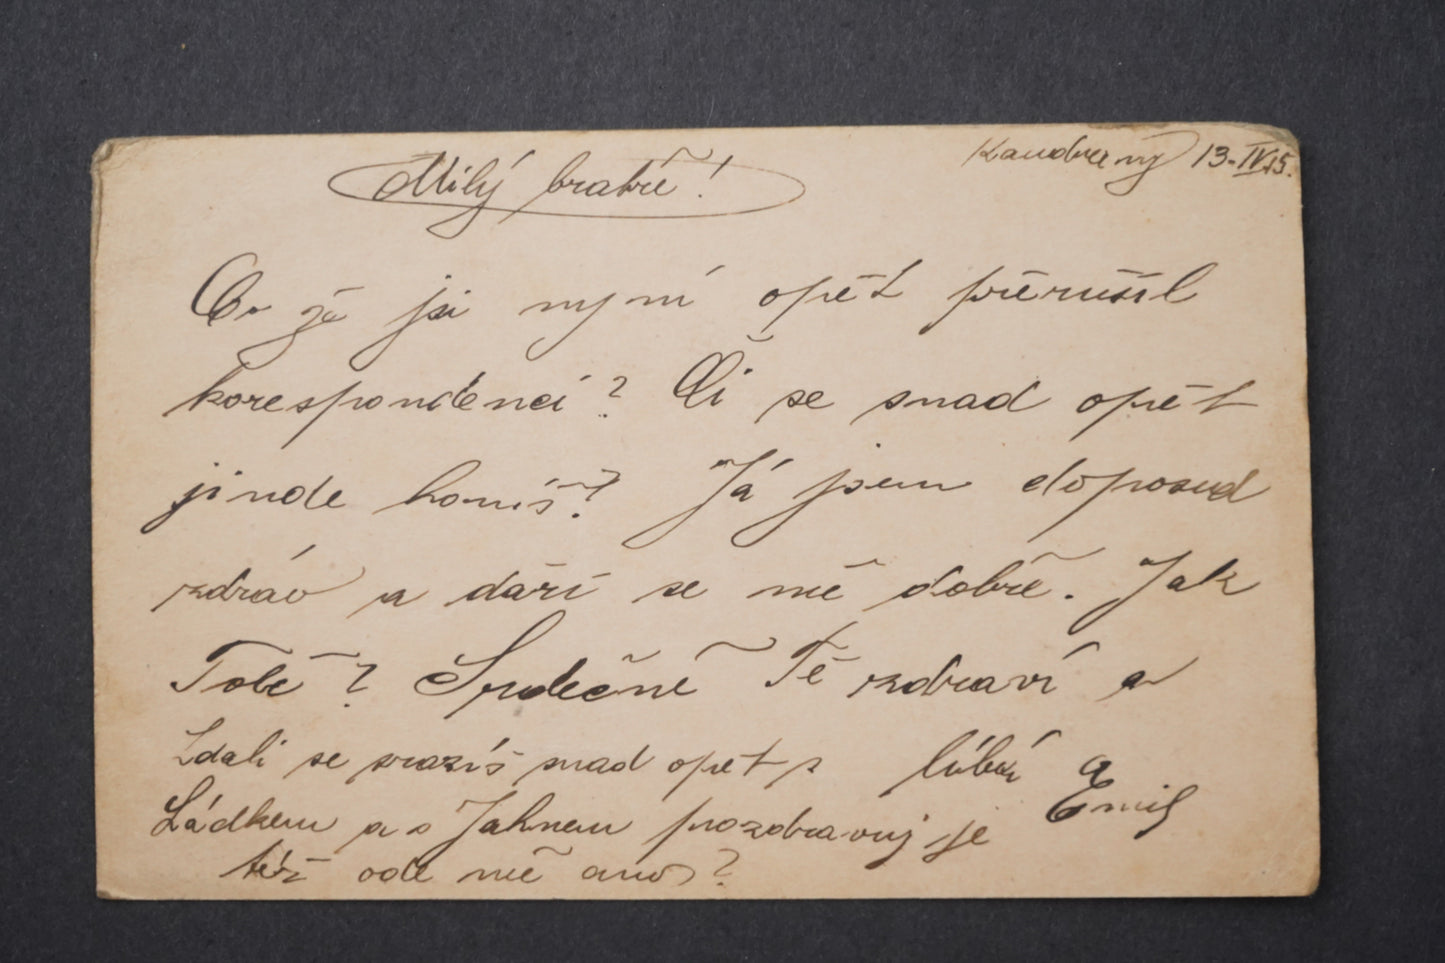 13. IV. 15.
Milý bratře!
Co že jsi nyní opět přerušil
korespondenci? Či se snad opět
jinde honíš? Já jsem doposud
zdráv a daří se mě dobře. Jak
Tobě? Srdečně Tě zdraví a
líbá
Emil
Zdali se srazíš snad opět s
Ládkem a s Jahnem pozdravuj je
též ode mě ano?